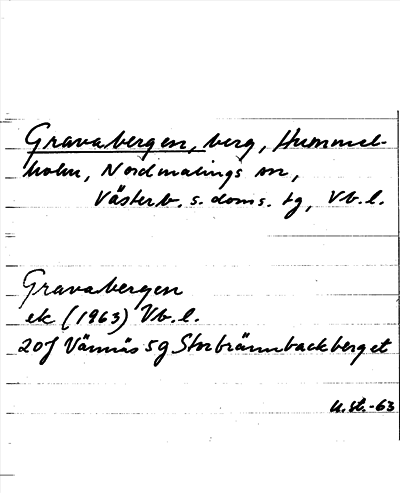 Gravabergen, berg, Hummel-
holm, Nordmalings sn,
Västerb. s. doms. tg, Vb.l.
Gravabergen
ek (1963) Vb.l.
20J Vännäs 5g Storbrännbackberget
u.st.-63